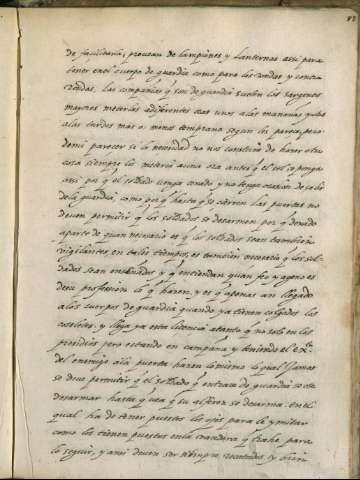 de facilitaria, provean de lampiones y lanternas assi para
tener en el cuerpo de guardia como para las rondas y contra
rondas, las compañias q̃ son de guardia suelen los sargentos
mayores meterlas a diferentes oras unos a las mañanas y otros
a las tardes mas o menos temprano segun les parece, pero
de mi parecer si la necesidad no nos constriñe de hazer otra
cosa siempre la meteria auna ora antes q̃ el sol se ponga
assi por q̃ el soldado venga cenado y no tenga ocasion de salir
de la guardia, como por q̃ hasta q̃ se cierren las puertas no
deuen permitir q̃ los soldados se desarmen por q̃ dexado
aparte de quan necesario es q̃ los soldados sean tambien
vigilantes, en tales tiempos, es tambien necesario q̃ los sol-
dados sean enseñados y q̃ entiendan quan feo y ageno es
de su profession lo q̃ hazen, y es q̃ apenas an llegado
a los cuerpos de guardia quando ya tienen colgados los
coseletes, y llega ya esta licencia a tanto q̃ no solo en los
presidios pero estando en campaña y teniendo al ex.to
del enemigo a la puerta hazen lo mismo lo qual jamas
se deue permitir q̃ el soldado q̃ entrare de guardia se aya
desarmar hasta q̃ vea q̃ su alferez se desarma en el
qual ha de tener puestos los ojos para le ymitar
como los tienen puestos en la vandera q̃ trahe para
la seguir, y ansi deuen ser siempre